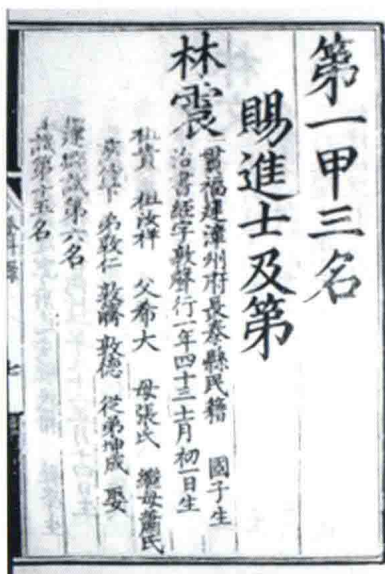 第一甲三名
賜進士及第
林震
貫福建漳州府長泰縣民籍 國子生
治書經字敦聲行一年四十三十一月初一日生
祖貴 祖汝祥 父希大 母張氏 繼母蕭氏
慶侍下 弟敦仁 敦睛 敦德 從弟坤成 娶
試第六名
試第十五名
七